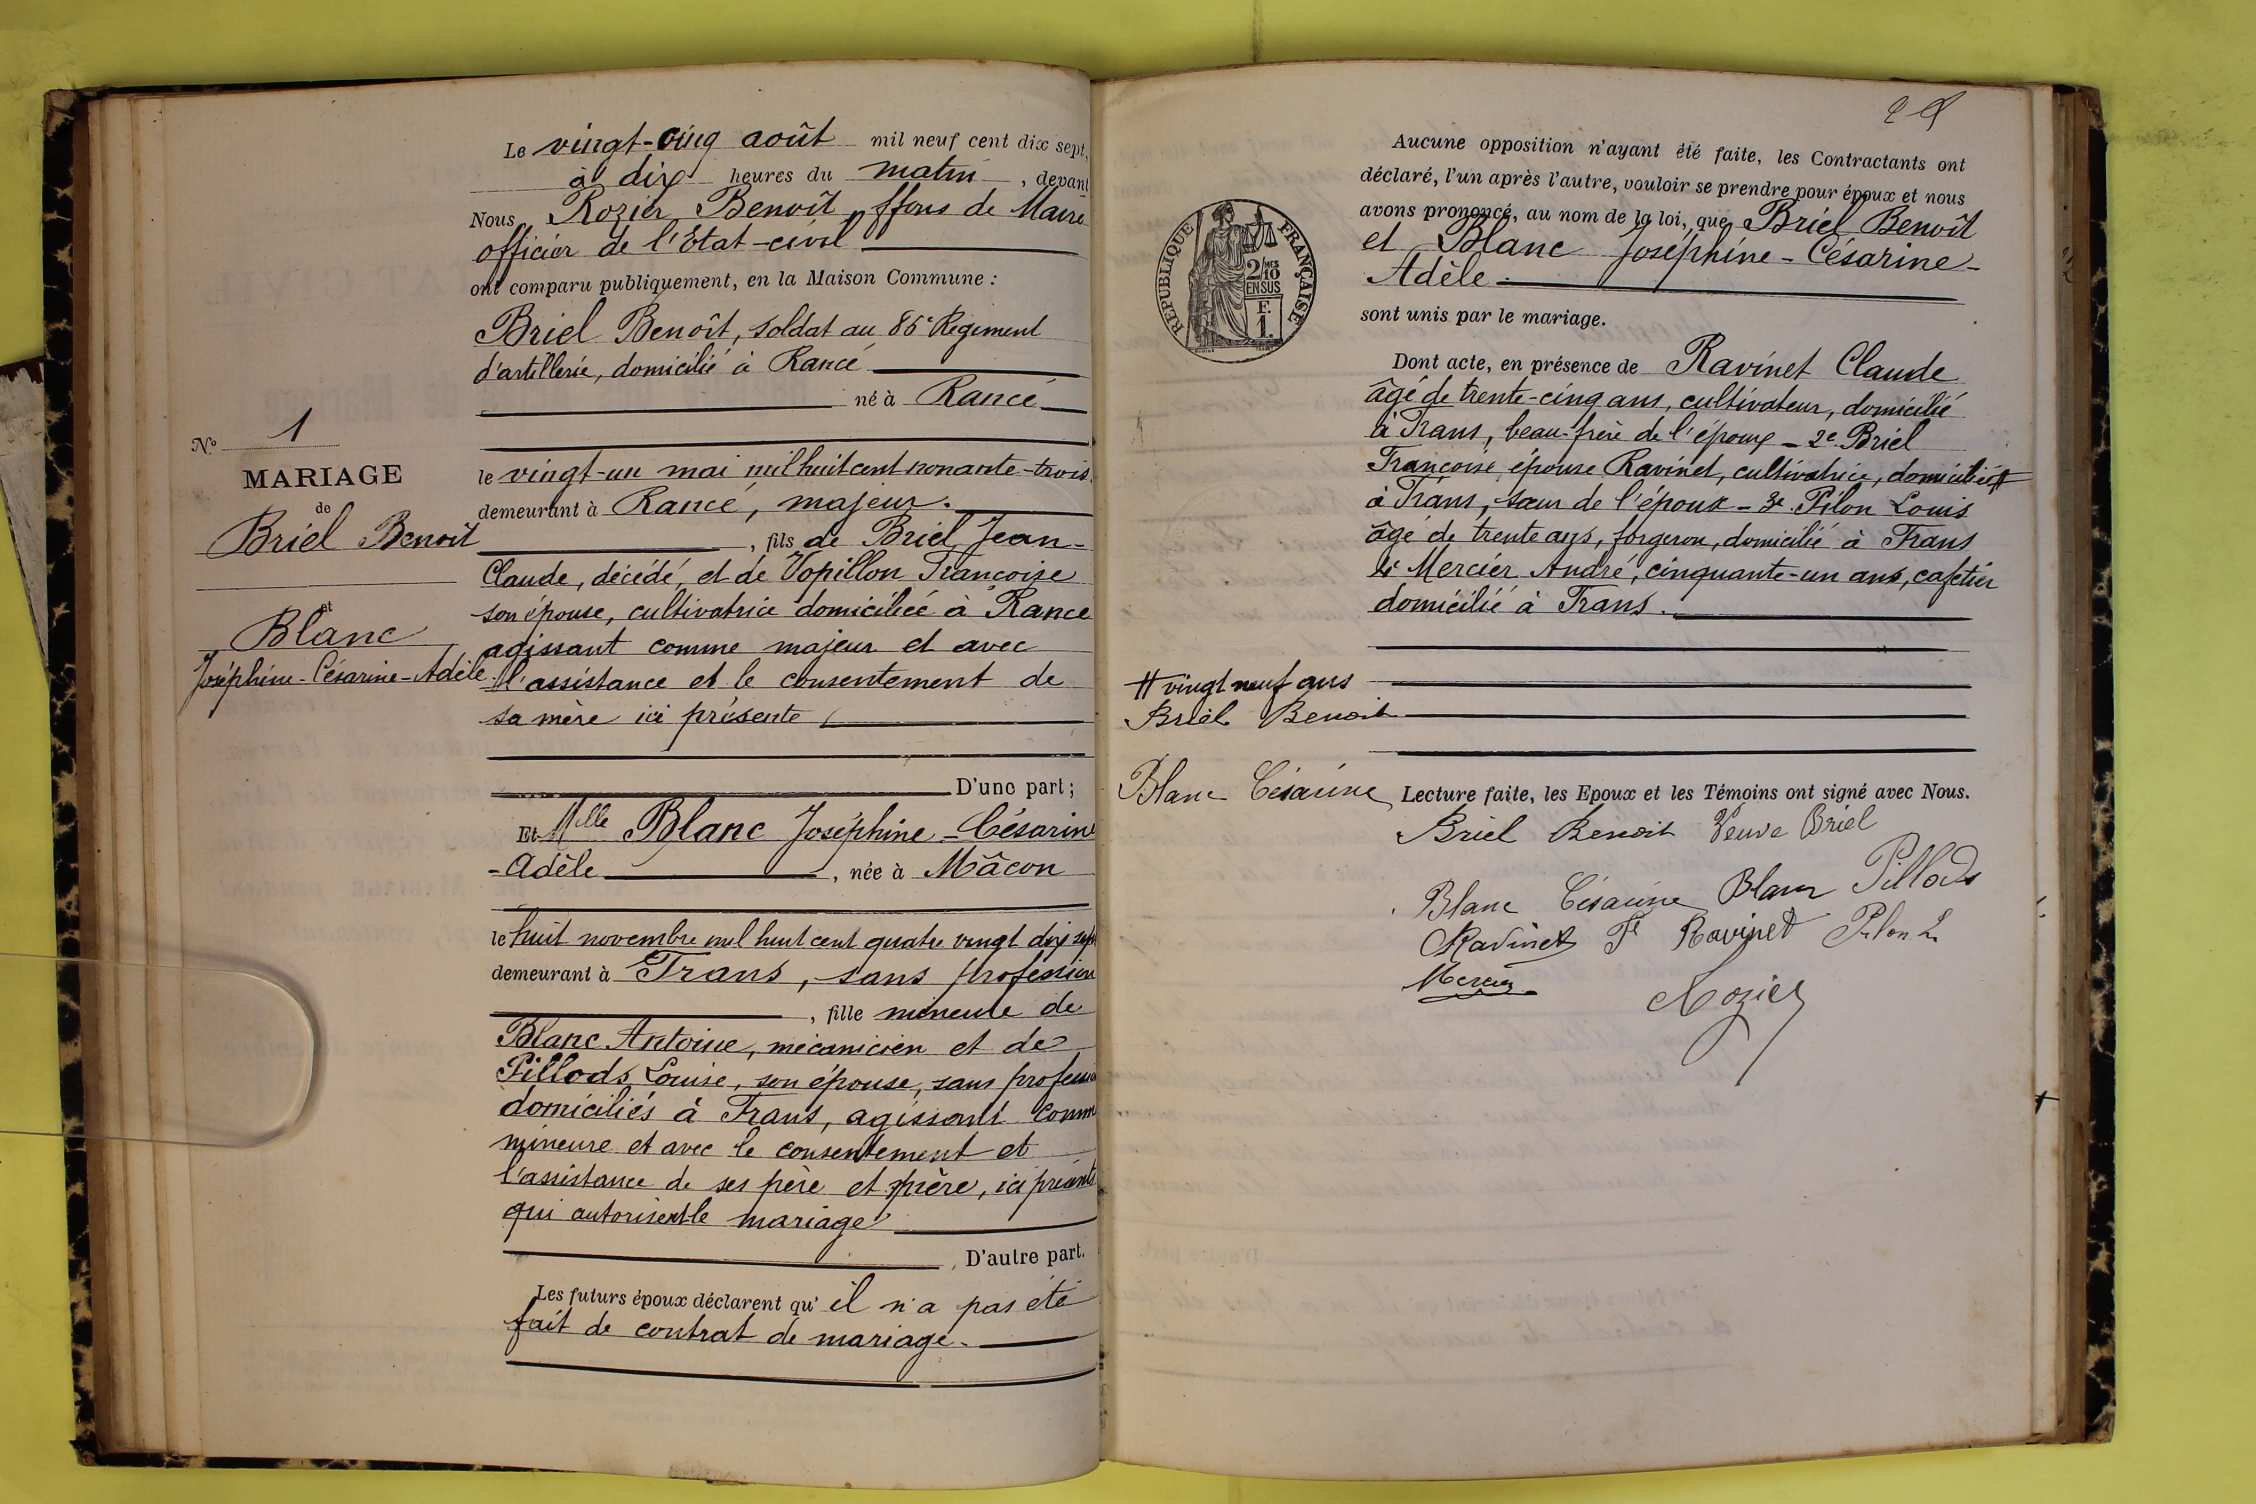 Le vingt-cinq août mil neuf cent dix sept,
à dix heures du matin, devant
Nous, Rozier Benoît, ffons de Maire
officier de l'Etat-civil
ont comparu publiquement, en la Maison Commune :
Briel Benoît, soldat au 86e Régiment
d'artillerie, domicilié à Rancé
né à Rancé
No 1
MARIAGE
de
Briel Benoît
et
Blanc
Joséphine-Césarine-Adèle
le vingt-un mai mil huit cent nonante-trois
demeurant à Rancé, majeur.
, fils de Briel Jean-
Claude, décédé, et de Vopillon Françoise
son épouse, cultivatrice domiciliée à Rancé
agissant comme majeur et avec
l'assistance et le consentement de
sa mère ici présente
D'une part ;
Et Mlle Blanc Joséphine-Césarine
-Adèle, née à Mâcon
le huit novembre mil huit cent quatre vingt dix sept
demeurant à Trans, sans profession
, fille mineure de
Blanc Antoine, mécanicien et de
Pillods Louise, son épouse, sans profession
domiciliés à Trans, agissant comm
mineure et avec le consentement et
l'assistance de ses père et mère, ici présents
qui autorisent le mariage
D'autre part.
Les futurs époux déclarent qu'il n'a pas été
fait de contrat de mariage.
Aucune opposition n'ayant été faite, les Contractants ont
déclaré, l'un après l'autre, vouloir se prendre pour époux et nous
avons prononcé, au nom de la loi, que Briel Benoît
et Blanc Joséphine-Césarine-
Adèle
sont unis par le mariage.
RÉPUBLIQUE FRANÇAISE
2/10
EN SUS
F.
1.
Dont acte, en présence de Ravinet Claude
âgé de trente-cinq ans, cultivateur, domicilié
à Trans, beau-frère de l'époux - 2e Briel
Françoise, épouse Ravinet, cultivatrice, domiciliée #
à Trans, sœur de l'époux - 3e Pilon Louis
âgé de trente ans, forgeron, domicilié à Trans
4e Mercier André, cinquante-un ans, cafetier
domicilié à Trans.
# vingt neuf ans
Briel Benoit
Blanc Césarine
Lecture faite, les Epoux et les Témoins ont signé avec Nous.
Briel Benoit Veuve Briel
Blanc Césarine Blanc Pillods
Ravinet Fe Ravinet Pilon L
Mercier
Rozier